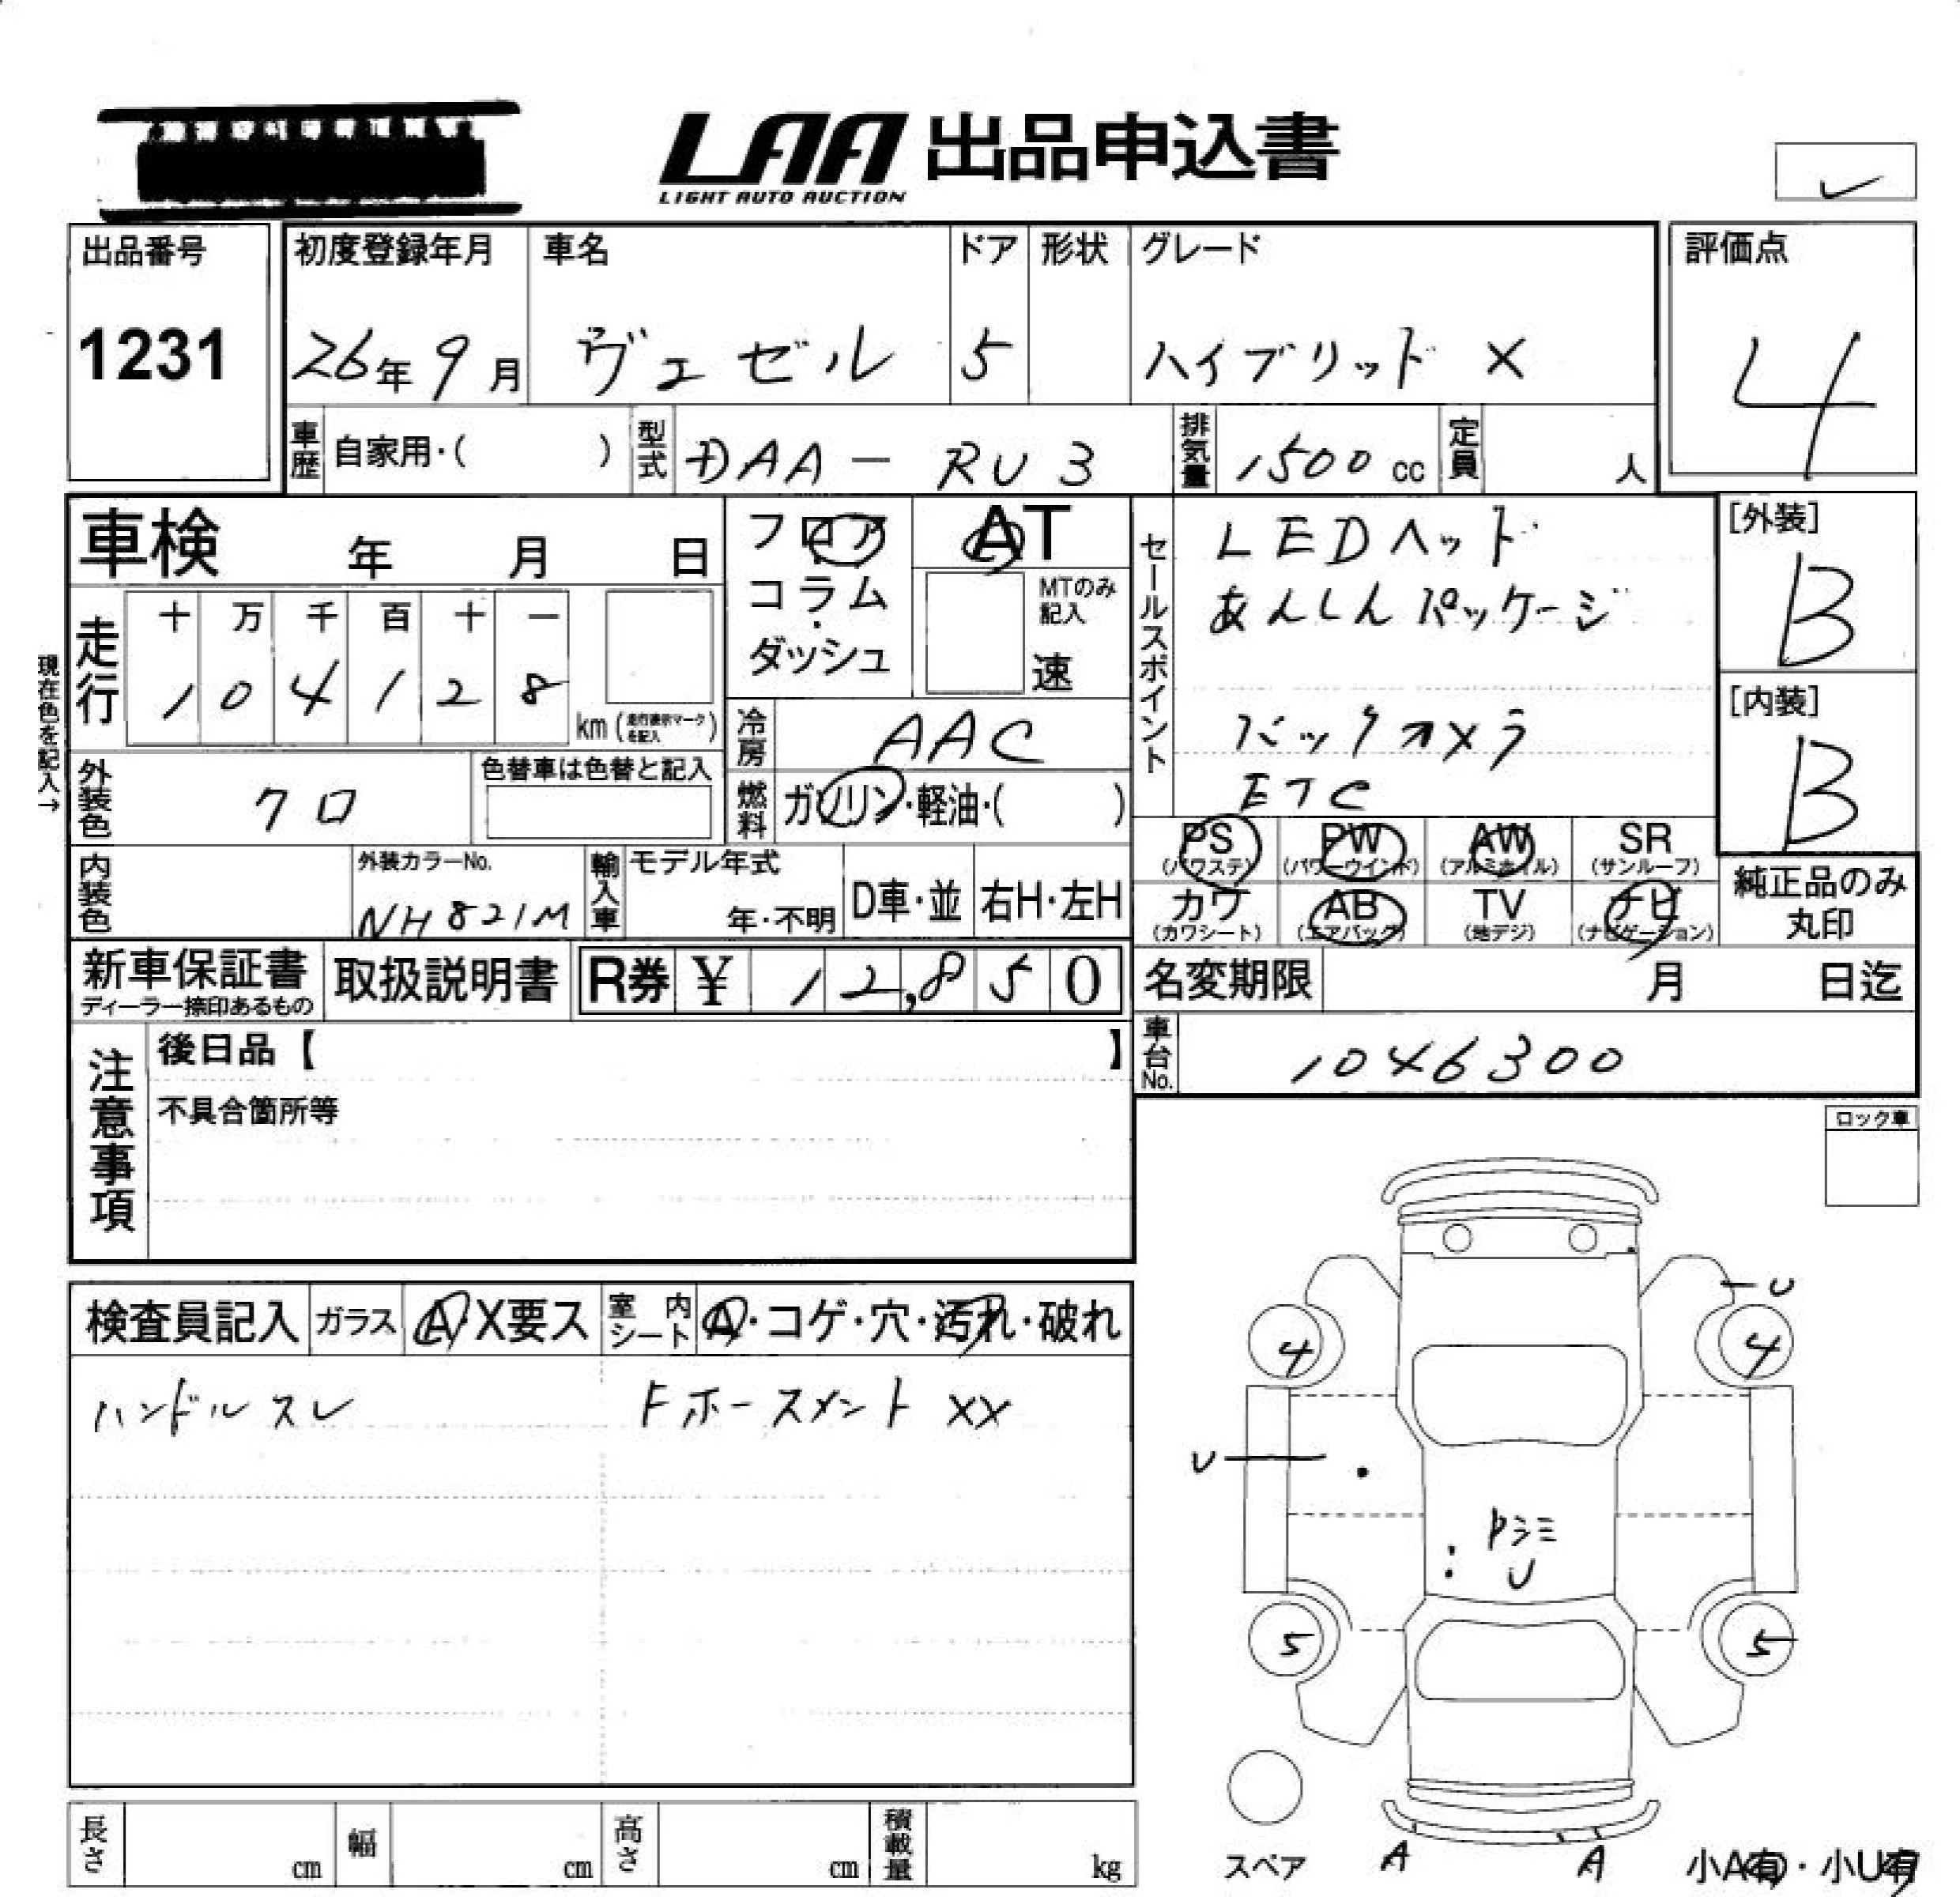 LAA 出品申込書
LIGHT AUTO AUCTION
出品番号 初度登録年月 車名 ドア 形状 グレード 評価点
1231 26年 9月 ヴェゼル 5 ハイブリッド X 4
車歴 自家用・( ) 型式 DAA - RU3 排気量 1500 cc 定員 人
車検 年 月 日
フロア・コラム・ダッシュ
AT
MTのみ記入
速
セールスポイント
LEDヘッド
あんしんパッケージ
バックカメラ
ETC
[外装]
B
[内装]
B
現在色を記入→
走行 十 万 千 百 十 一
1 0 4 1 2 8
km (走行表示マークを記入)
冷房 AAC
燃料 ガソリン・軽油・( )
外装色 クロ
色替車は色替と記入
PS (パワステ) PW (パワーウインド) AW (アルミホイル) SR (サンルーフ)
カワ (カワシート) AB (エアバック) TV (地デジ) ナビ (ナビゲーション)
純正品のみ丸印
内装色 外装カラーNo. NH821M
輸入車 モデル年式 年・不明 D車・並 右H・左H
新車保証書 ディーラー捺印あるもの
取扱説明書
R券 ¥ 12,850
名変期限 月 日迄
車台No. 1046300
注意事項
後日品【 】
不具合箇所等
ロック車
検査員記入 ガラス A・X要ス 室内シート A・コゲ・穴・汚れ・破れ
ハンドルスレ Fホースメント XX
U
4 4
U
Pシミ
U
5 5
スペア A A 小A有・小U有
長さ cm 幅 cm 高さ cm 積載量 kg